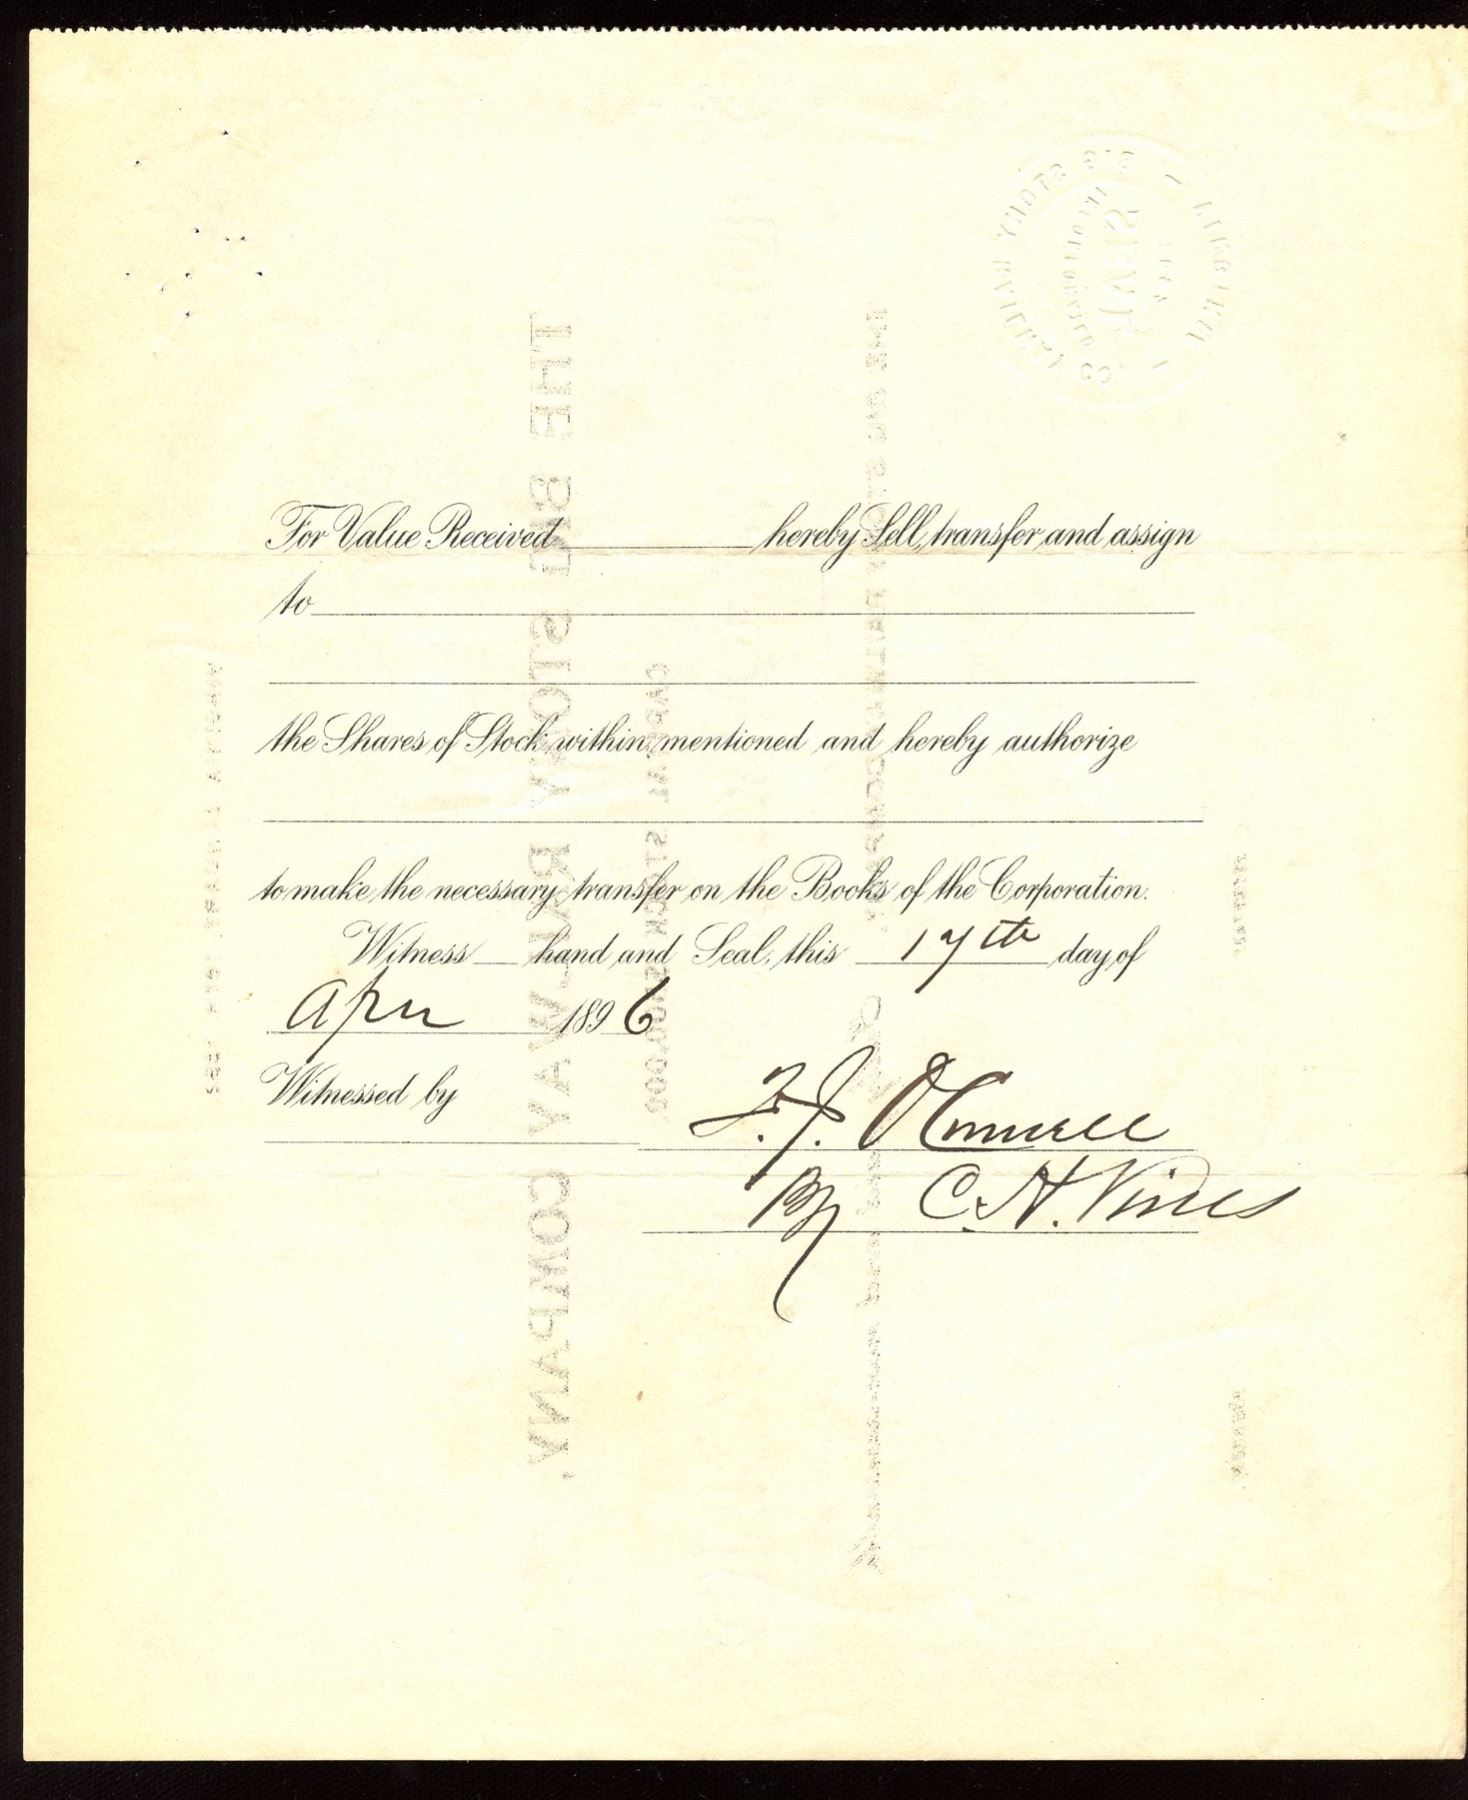 For Value Received hereby Sell, transfer and assign
to
the Shares of Stock within mentioned and hereby authorize
to make the necessary transfer on the Books of the Corporation.
Witness hand and Seal, this 17th day of
April 1896
Witnessed by
F. J. O'Connell
By C. H. Vines
THE BIG STONY RAILWAY COMPANY